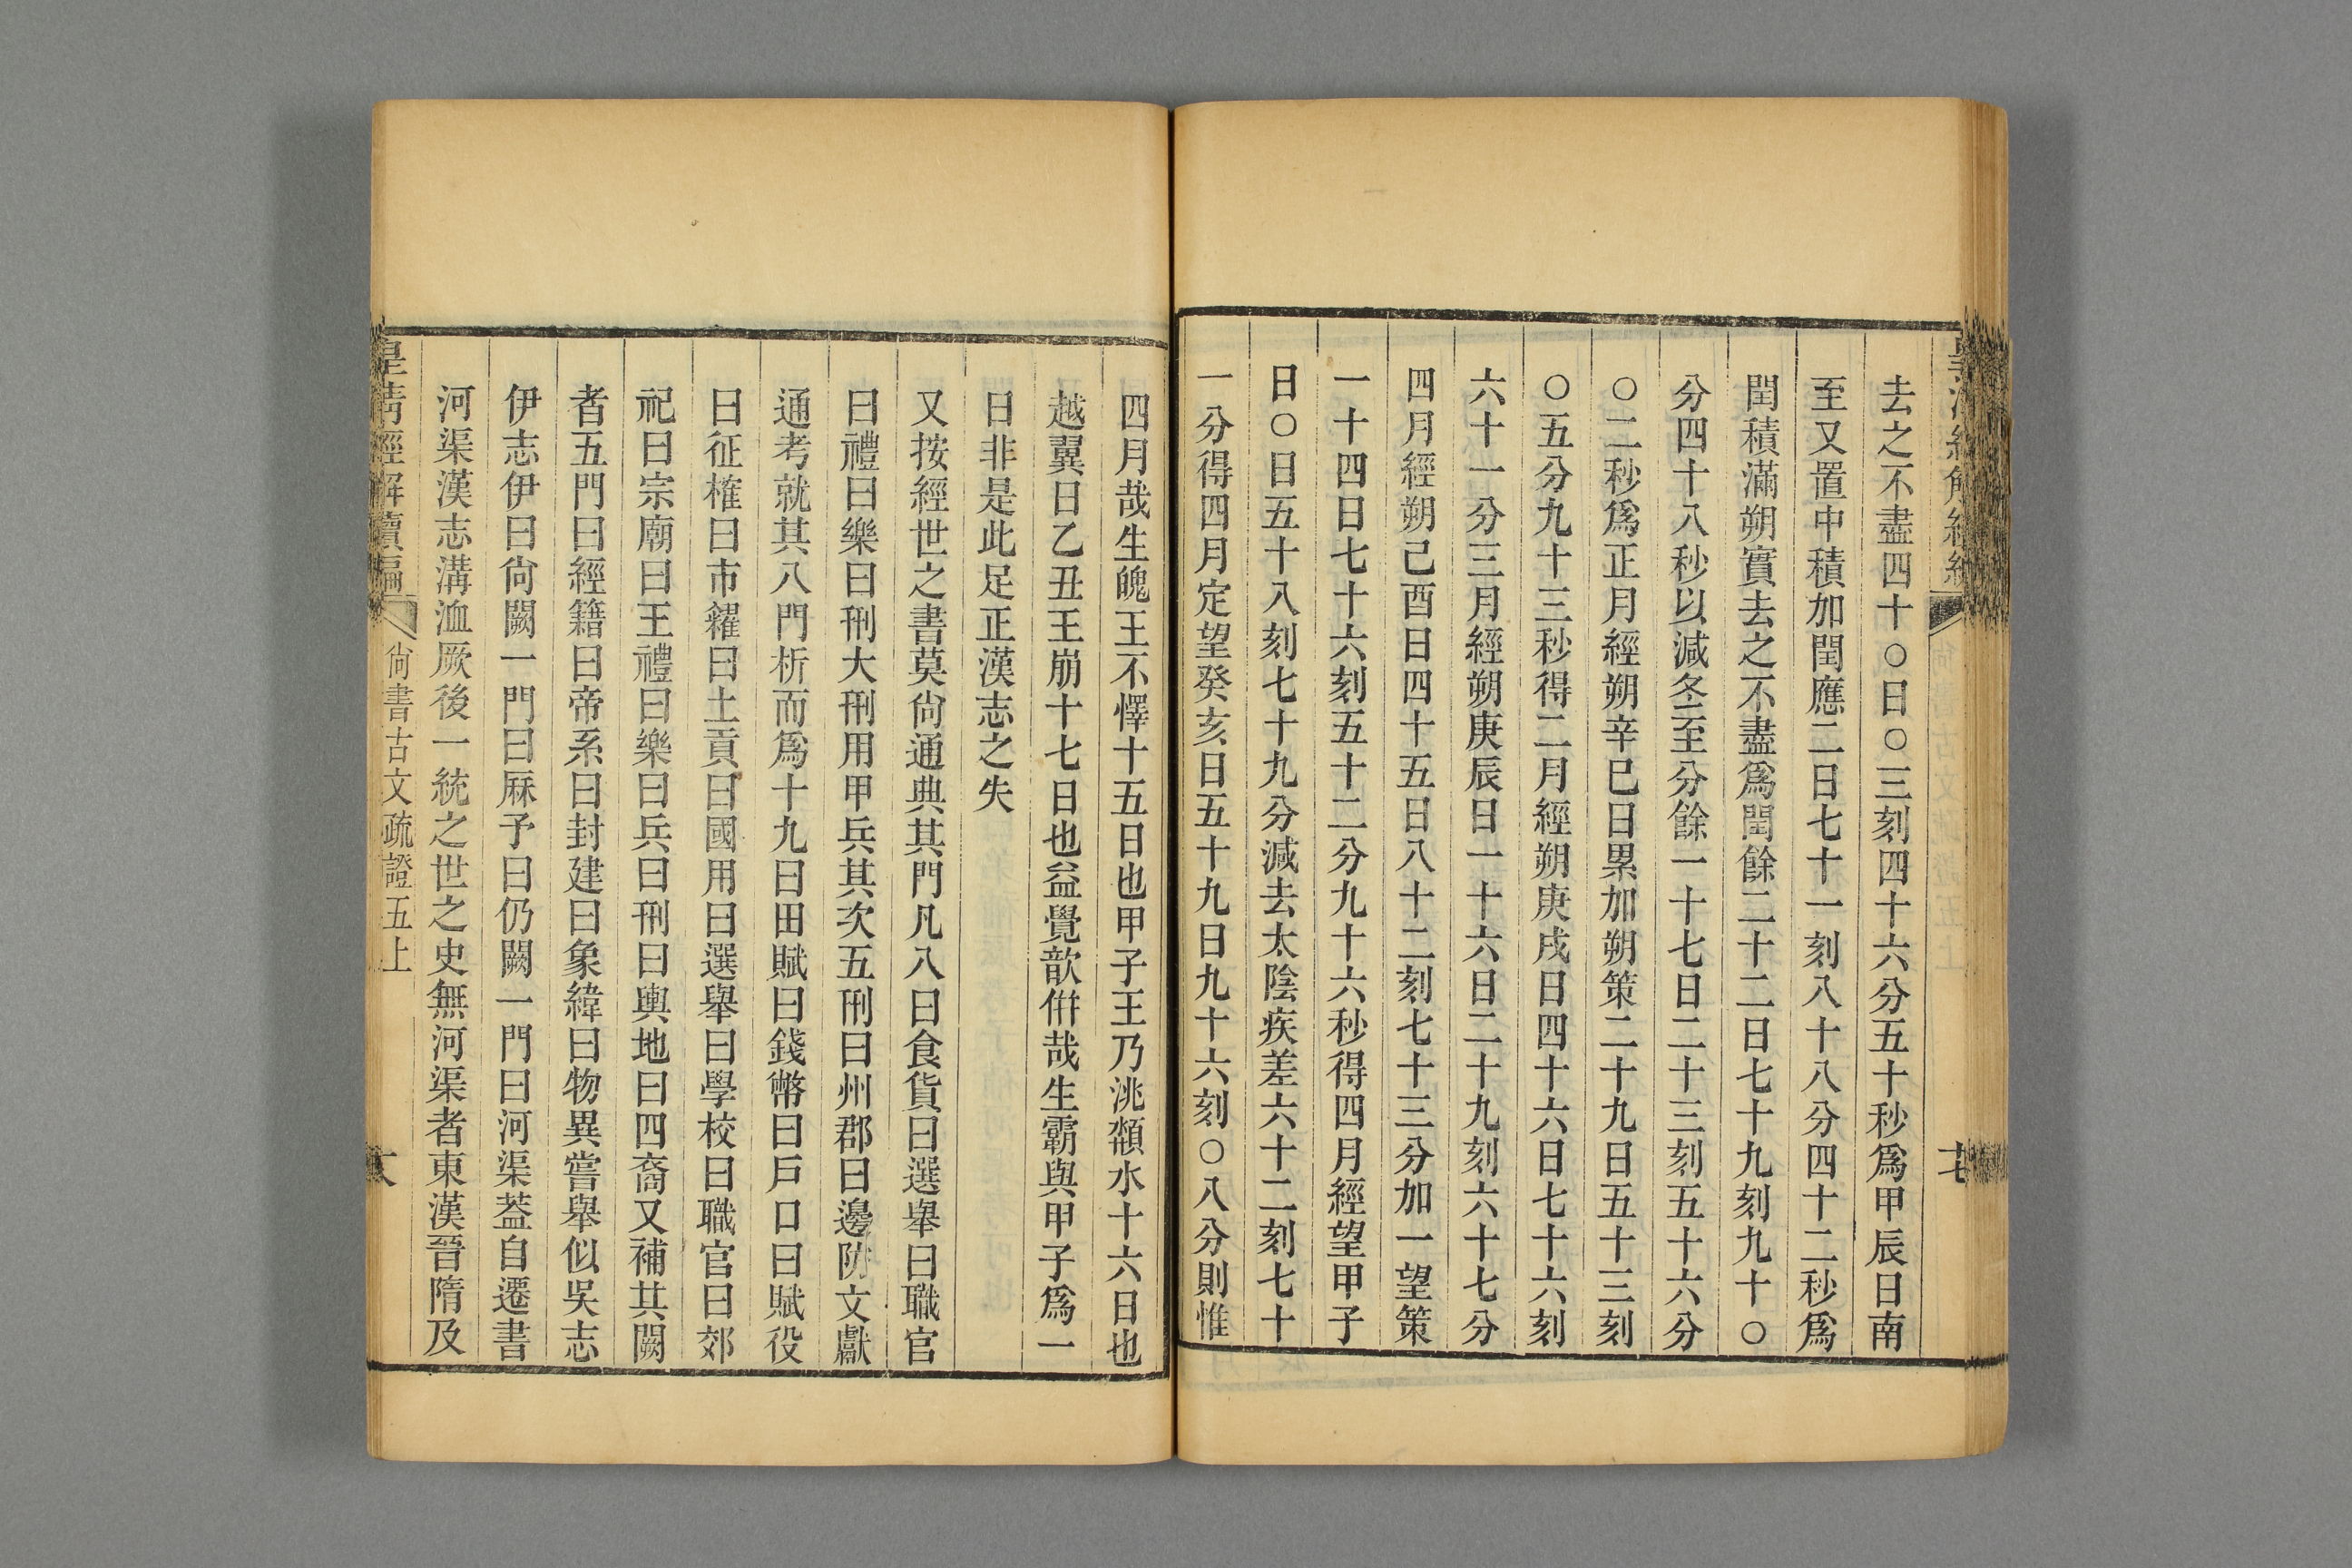 去之不盡四十〇日〇三刻四十六分五十秒爲甲辰日南
至又置中積加閏應二日七十一刻八十八分四十二秒爲
閏積滿朔實去之不盡爲閏餘二十二日七十九刻九十〇
分四十八秒以減冬至分餘一十七日二十三刻五十六分
〇二秒爲正月經朔辛巳日累加朔策二十九日五十三刻
〇五分九十三秒得二月經朔庚戌日四十六日七十六刻
六十一分三月經朔庚辰日一十六日二十九刻六十七分
四月經朔己酉日四十五日八十二刻七十三分加一望策
一十四日七十六刻五十二分九十六秒得四月經望甲子
日〇日五十八刻七十九分減去太陰疾差六十二刻七十
一分得四月定望癸亥日五十九日九十六刻〇八分則惟
四月哉生魄王不懌十五日也甲子王乃洮頮水十六日也
越翼日乙丑王崩十七日也益覺歆併哉生霸與甲子爲一
日非是此足正漢志之失
又按經世之書莫尙通典其門凡八曰食貨曰選舉曰職官
曰禮曰樂曰刑大刑用甲兵其次五刑曰州郡曰邊防文獻
通考就其八門析而爲十九曰田賦曰錢幣曰戶口曰賦役
曰征榷曰市糴曰土貢曰國用曰選舉曰學校曰職官曰郊
祀曰宗廟曰王禮曰樂曰兵曰刑曰輿地曰四裔又補其闕
者五門曰經籍曰帝系曰封建曰象緯曰物異嘗舉似吳志
伊志伊曰尙闕一門曰厤予曰仍闕一門曰河渠葢自遷書
河渠漢志溝洫厥後一統之世之史無河渠者東漢晉隋及
皇清經解續編
尙書古文疏證五上